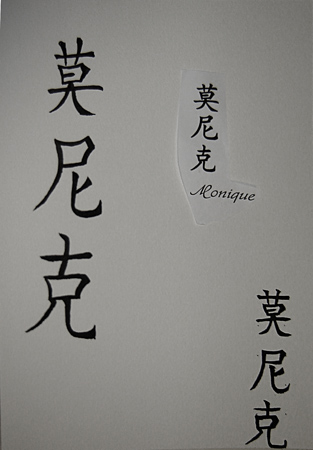 莫尼克
莫尼克
Monique
莫尼克